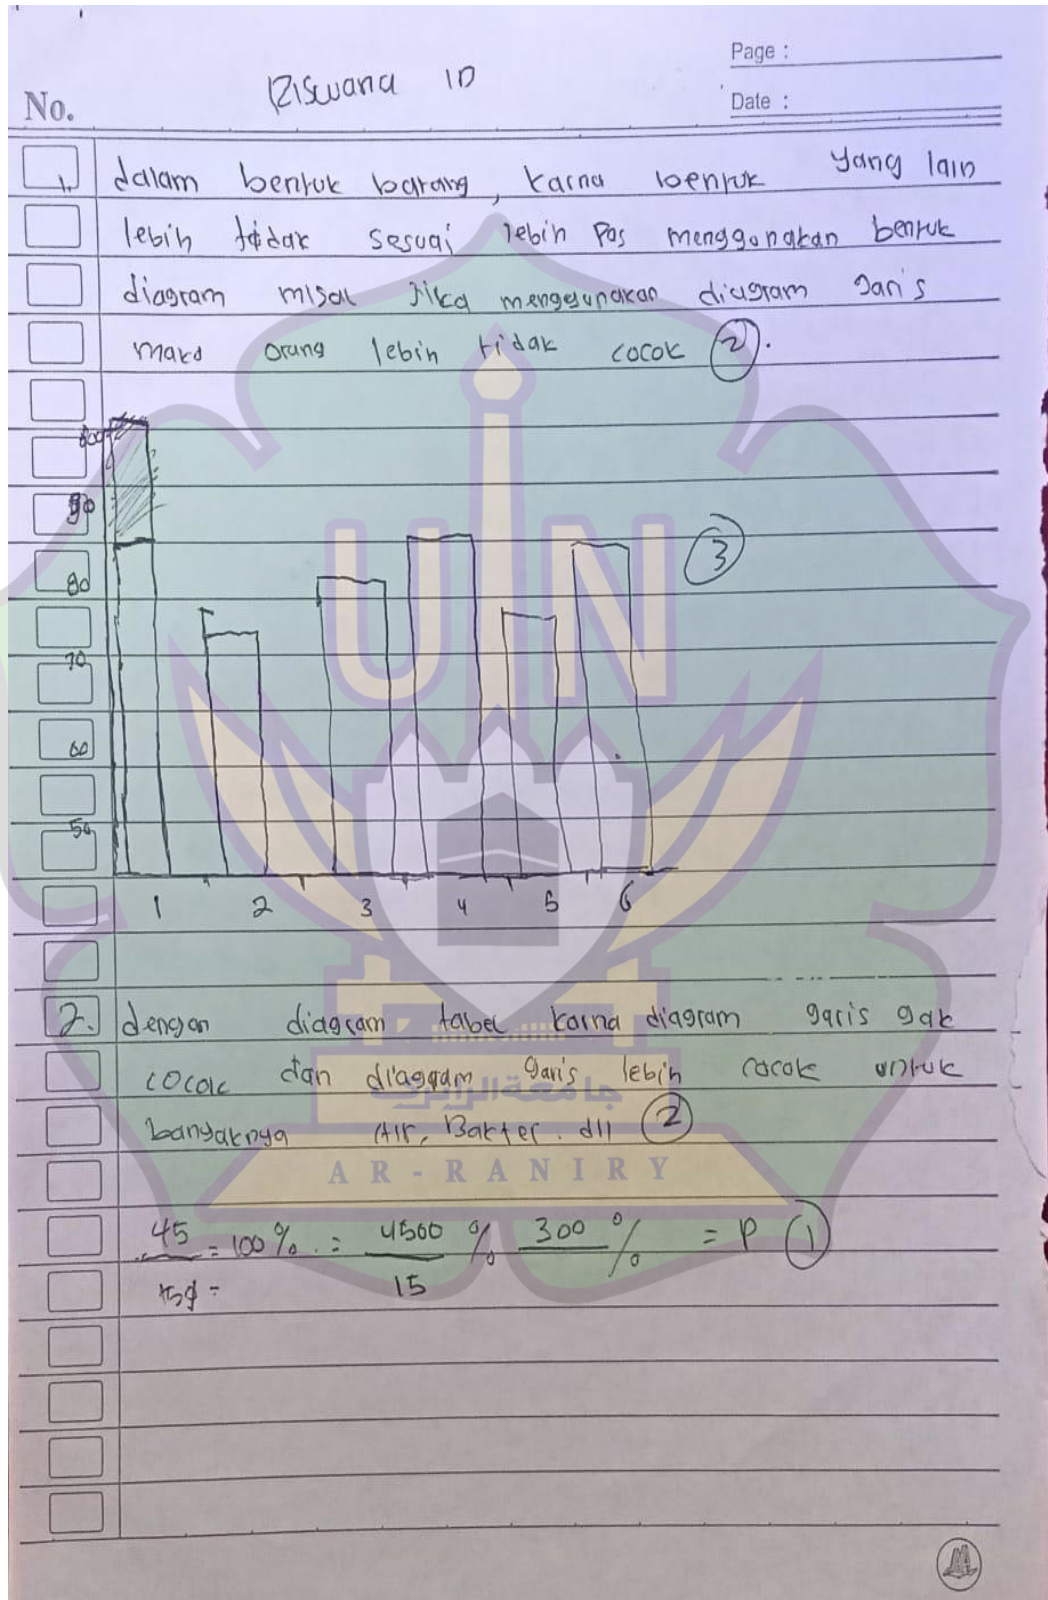 Page :
Riswana ID
No.
Date :
1. dalam bentuk batang, karna bentuk yang lain
lebih tidak sesuai lebih pas menggunakan bentuk
diagram misal jika menggunakan diagram garis
maka orang lebih tidak cocok (2).
90
80
70
60
50
3
1 2 3 4 5 6
2. dengan diagram tabel karna diagram garis gak
cocok dan diagram garis lebih cocok untuk
banyaknya Air, Bakter. dll (2)
45 = 100% . = 4500 % 300 % = P (1)
15
UIN
جامعة الرانري
AR-RANIRY